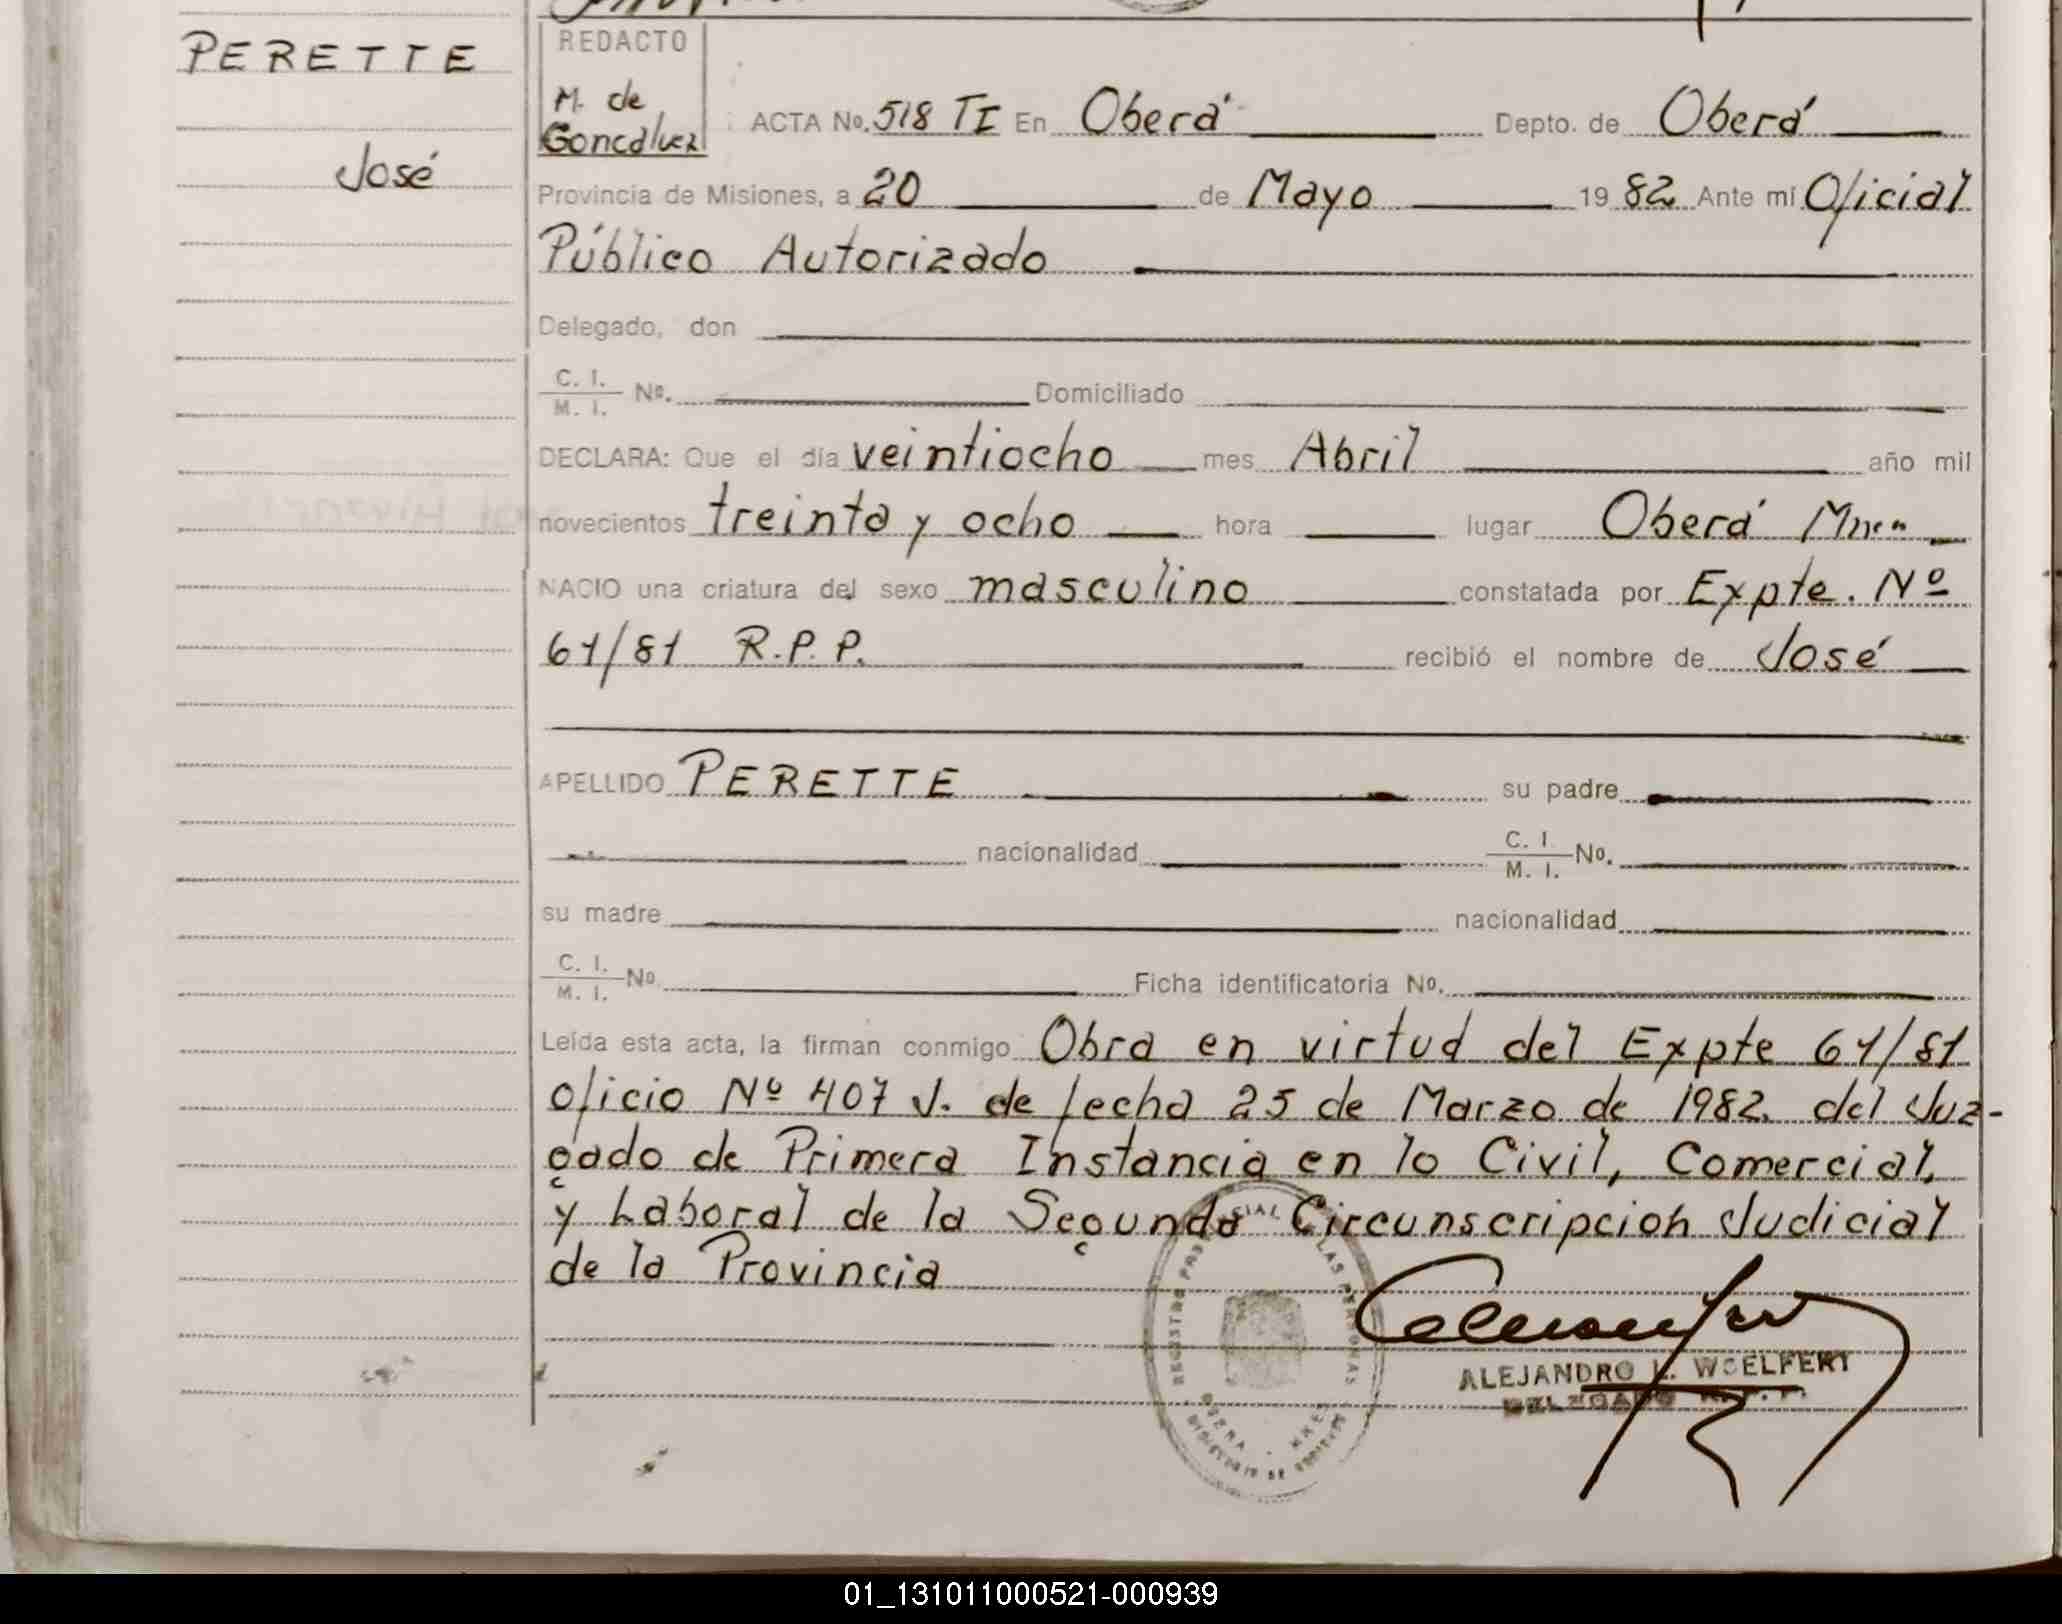 PERETTE
José
REDACTO
M. de
Goncalvez
ACTA No. 518 TI En Oberá Depto. de Oberá
Provincia de Misiones, a 20 de Mayo 19 82 Ante mí Oficial
Público Autorizado
Delegado, don
C. I.
M. I. No. Domiciliado
DECLARA: Que el día veintiocho mes Abril año mil
novecientos treinta y ocho hora lugar Oberá Mnes
NACIO una criatura del sexo masculino constatada por Expte. Nº
61/81 R.P.P. recibió el nombre de José
APELLIDO PERETTE su padre
nacionalidad C. I.
M. I. No.
su madre nacionalidad
C. I.
M. I. No. Ficha identificatoria No.
Leída esta acta, la firman conmigo Obra en virtud del Expte 61/81
oficio Nº 407 J. de fecha 25 de Marzo de 1982 del Juz-
gado de Primera Instancia en lo Civil, Comercial,
y Laboral de la Segunda Circunscripcion Judicial
de la Provincia
ALEJANDRO L. WOELFERT
DELEGADO R.P.P.
01_131011000521-000939